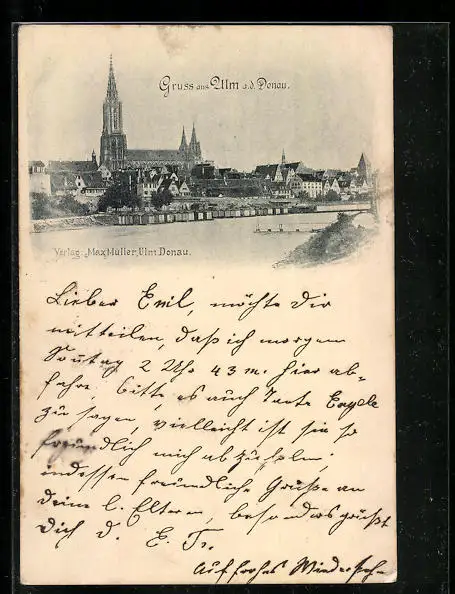 Gruss aus Ulm a.d. Donau.
Verlag: Max Müller, Ulm Donau.
Lieber Emil, möchte Dir
mitteilen, daß ich morgen
Sontag 2 Uhr 43 m. hier ab=
fahre, bitte, es auch Tante
zu sagen, vielleicht ist sie so
freundlich mich abzuholen;
indessen freundliche Grüße an
deine l. Eltern, besonders grüßt
Dich d. E. Tr.
Auf frohes Wiederseh.